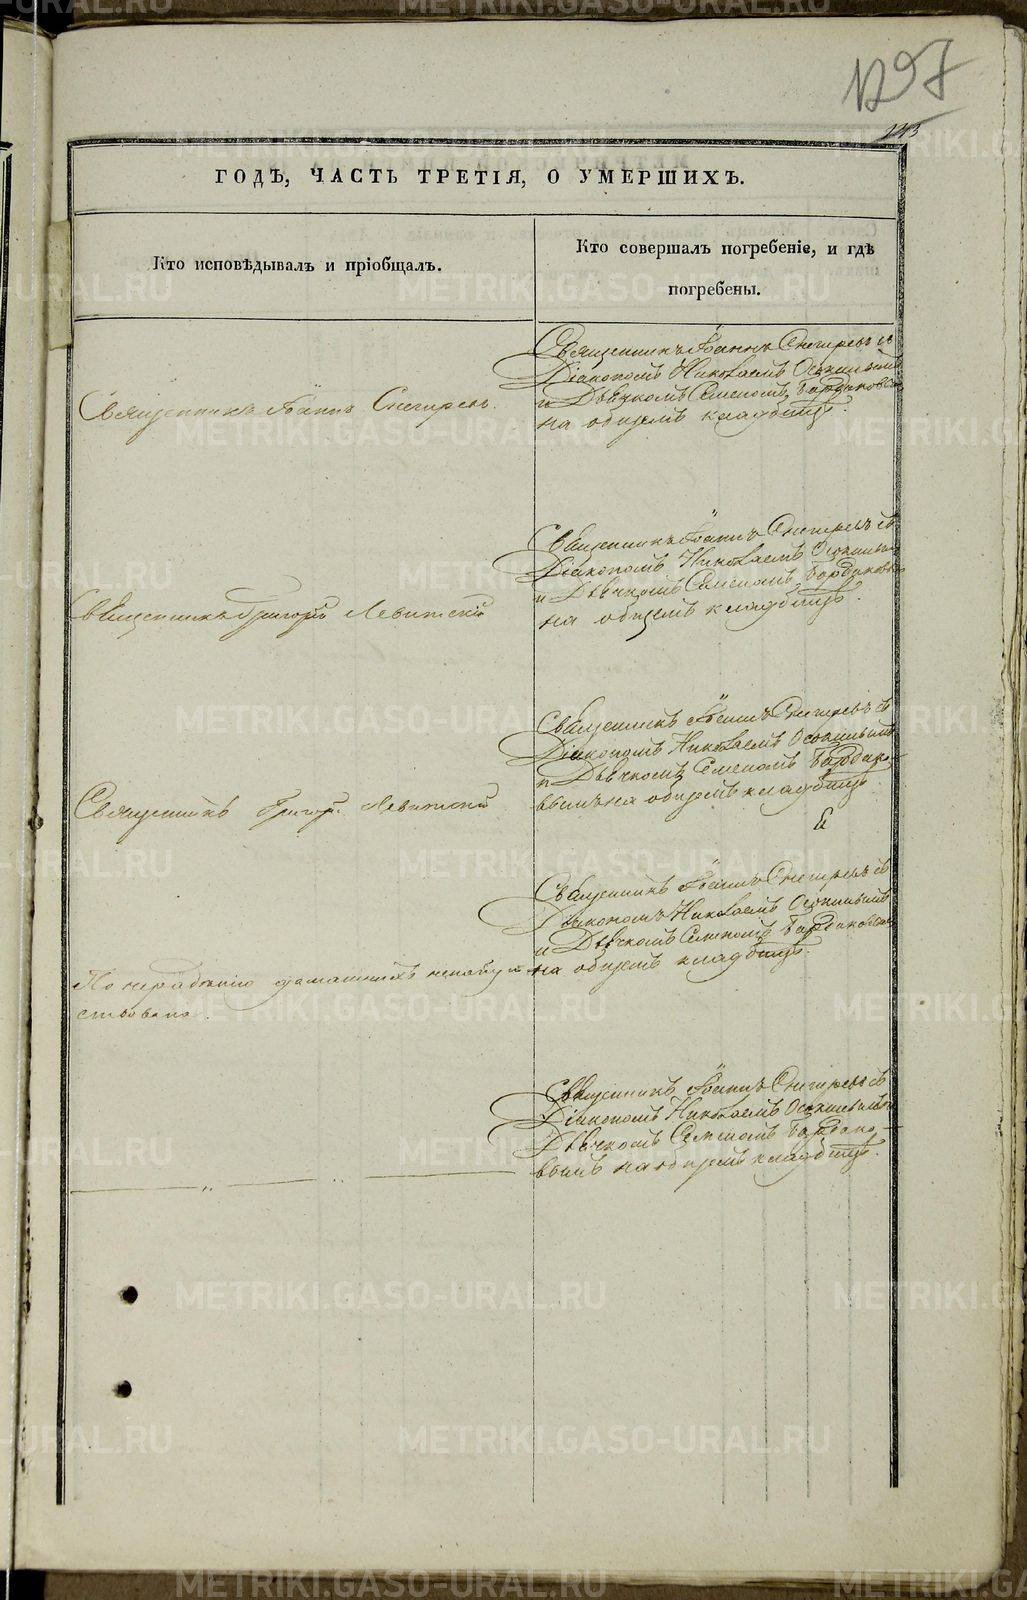 1297
143
ГОДЪ, ЧАСТЬ ТРЕТІЯ, О УМЕРШИХЪ.
Кто исповѣдывалъ и пріобщалъ.
Кто совершалъ погребеніе, и гдѣ
погребены.
Священникъ Іоаннъ Снегиревъ.
Священникъ Іоаннъ Снегиревъ съ
Діакономъ Николаемъ
и Дьячкомъ Семеномъ
на общемъ кладбищѣ.
Священникъ Григорій Левитскій
Священникъ Іоаннъ Снегиревъ съ
Діакономъ Николаемъ
и Дьячкомъ Семеномъ
на общемъ кладбищѣ.
Священникъ Григор. Левитскій
Священникъ Іоаннъ Снегиревъ съ
Діакономъ Николаемъ
и Дьячкомъ Семеномъ Бардако-
вымъ на общемъ кладбищѣ
По нерадѣнію домашнихъ
ствована.
Священникъ Іоаннъ Снегиревъ съ
Діакономъ Николаемъ
и Дьячкомъ Семеномъ
на общемъ кладбищѣ.
Священникъ Іоаннъ Снегиревъ съ
Діакономъ Николаемъ
Дьячкомъ Семеномъ Бардако-
вымъ на общемъ кладбищѣ.
METRIKI.GASO-URAL.RU